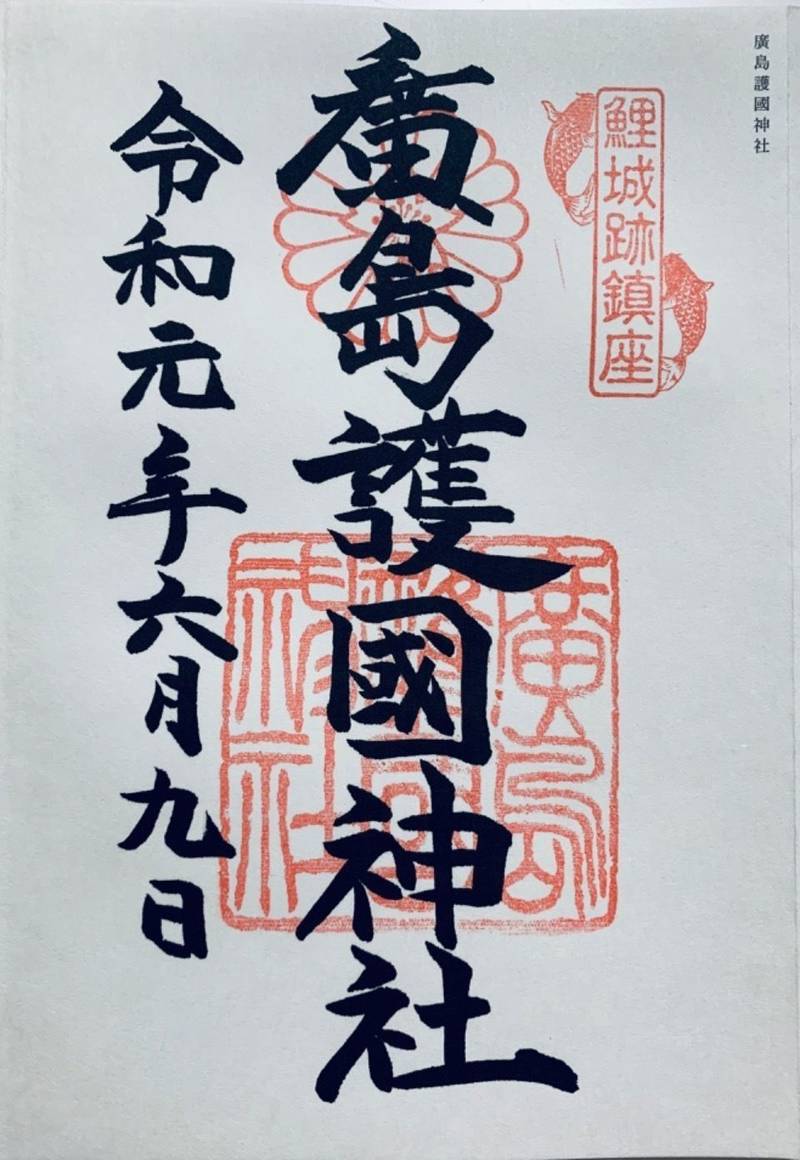 廣島護國神社
鯉城跡鎮座
廣島護國神社
廣島護國神社
令和元年六月九日